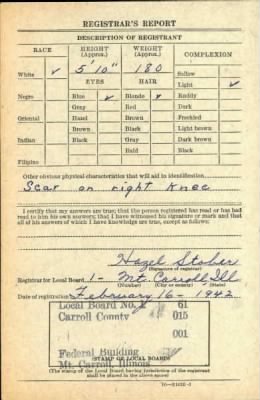 REGISTRAR'S REPORT
DESCRIPTION OF REGISTRANT
RACE HEIGHT (Approx.) WEIGHT (Approx.) COMPLEXION
White ✓ 5' 10" 180 Sallow
EYES HAIR Light ✓
Negro Blue ✓ Blonde ✓ Ruddy
Gray Red Dark
Oriental Hazel Brown Freckled
Brown Black Light brown
Indian Black Gray Dark brown
Bald Black
Filipino
Other obvious physical characteristics that will aid in identification
Scar on right Knee
I certify that my answers are true; that the person registered has read or has had
read to him his own answers; that I have witnessed his signature or mark and that
all of his answers of which I have knowledge are true, except as follows:
Hazel Stober
(Signature of registrar)
Registrar for Local Board 1- Mt. Carroll, Ill
Date of registration February 16 - 1942
Local Board No. 1 61
Carroll County 015
001
Federal Building
(STAMP OF LOCAL BOARD)
Mt. Carroll, Illinois
(The stamp of the Local Board having jurisdiction of the registrant
shall be placed in the above space)